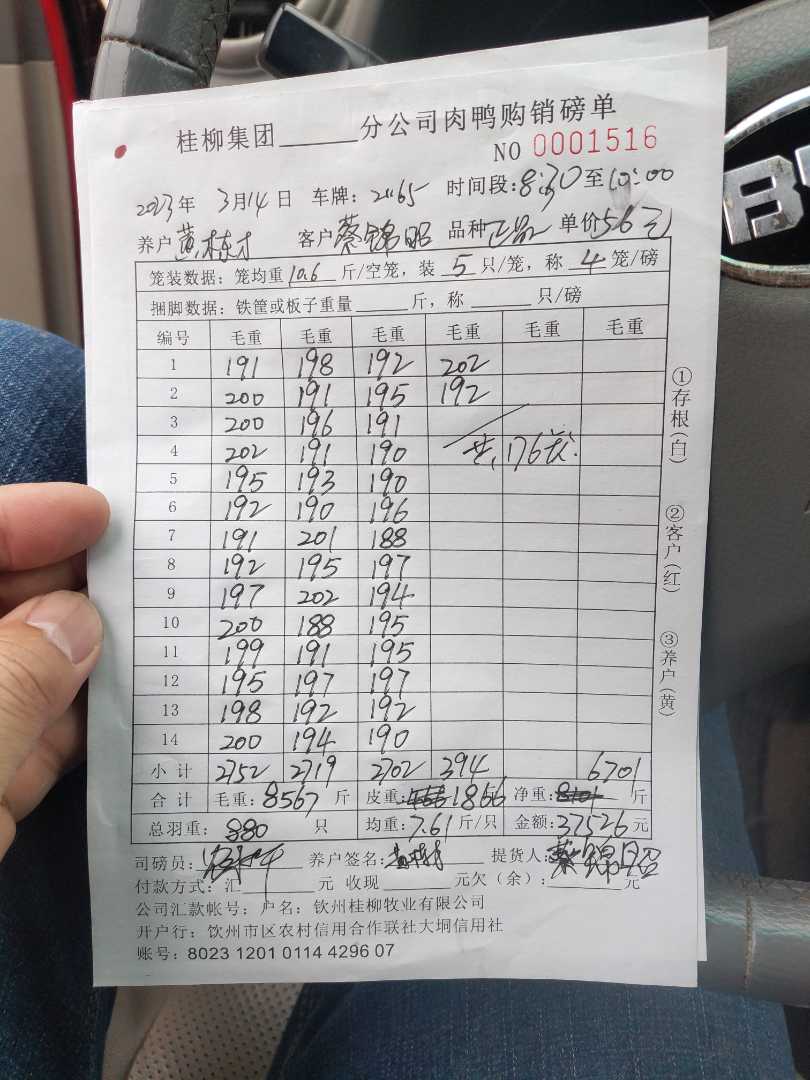 桂柳集团______分公司肉鸭购销磅单
NO 0001516
2023年 3月14日 车牌：2165 时间段：8:30至10:00
养户黄栋才 客户蔡锦昭 品种正品 单价5.6元
笼装数据：笼均重10.6斤/空笼，装5只/笼，称4笼/磅
捆脚数据：铁筐或板子重量______斤，称______只/磅
编号 毛重 毛重 毛重 毛重 毛重 毛重
1 191 198 192 202
2 200 191 195 192
3 200 196 191
4 202 191 190 共176笼
5 195 193 190
6 192 190 196
7 191 201 188
8 192 195 197
9 197 202 194
10 200 188 195
11 199 191 195
12 195 197 197
13 198 192 192
14 200 194 190
小计 2752 2719 2702 394 6701
合计 毛重：8567斤 皮重：1866 净重： 斤
总羽重：880只 均重：7.61斤/只 金额：37526元
司磅员： 养户签名：黄栋才 提货人：蔡锦昭
付款方式：汇______元 收现______元欠（余）：______元
公司汇款帐号：户名：钦州桂柳牧业有限公司
开户行：饮州市区农村信用合作联社大垌信用社
账号：8023 1201 0114 4296 07
①存根（白）
②客户（红）
③养户（黄）
BY